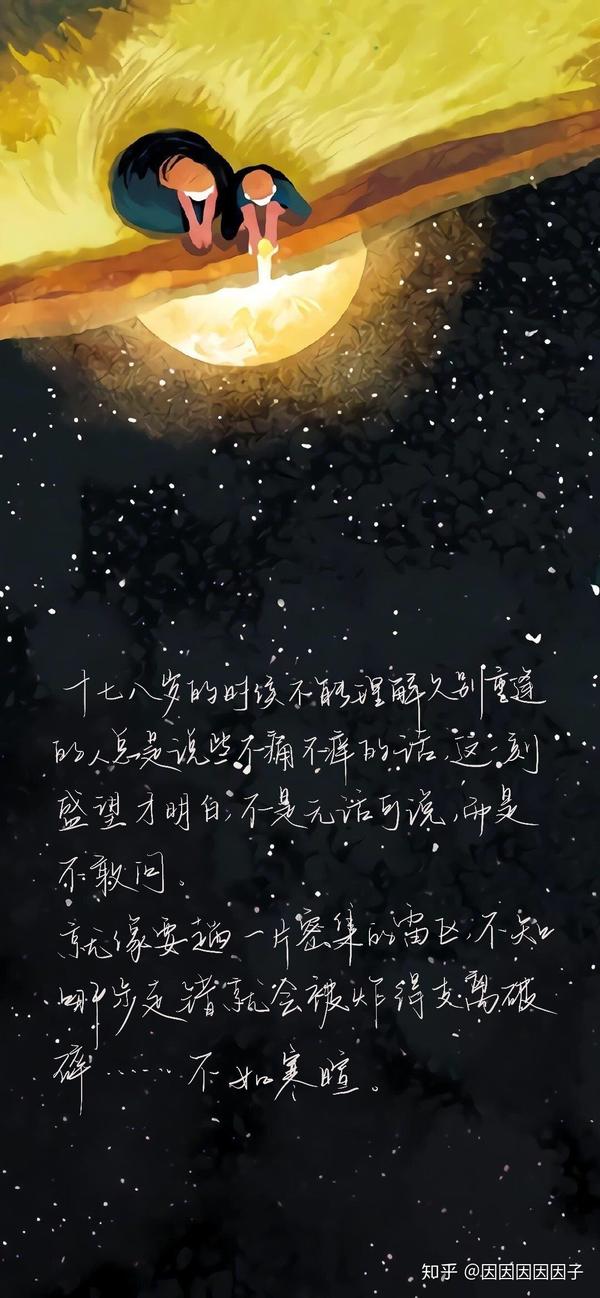 十七八岁的时候不能理解久别重逢
的人总是说些不痛不痒的话,这一刻
盛望才明白,不是无话可说,而是
不敢问。
就像要趟一片密集的雷区,不知
哪步走错就会被炸得支离破
碎……不如寒暄。
知乎 @因因因因因子